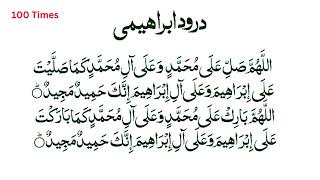 100 Times
درود ابراھیمی
اللّٰهُمَّ صَلِّ عَلَى مُحَمَّدٍ وَعَلَى آلِ مُحَمَّدٍ كَمَا صَلَّيْتَ
عَلَى إِبْرَاهِيمَ وَعَلَى آلِ إِبْرَاهِيمَ إِنَّكَ حَمِيدٌ مَجِيدٌ
اللّٰهُمَّ بَارِكْ عَلَى مُحَمَّدٍ وَعَلَى آلِ مُحَمَّدٍ كَمَا بَارَكْتَ
عَلَى إِبْرَاهِيمَ وَعَلَى آلِ إِبْرَاهِيمَ إِنَّكَ حَمِيدٌ مَجِيدٌ